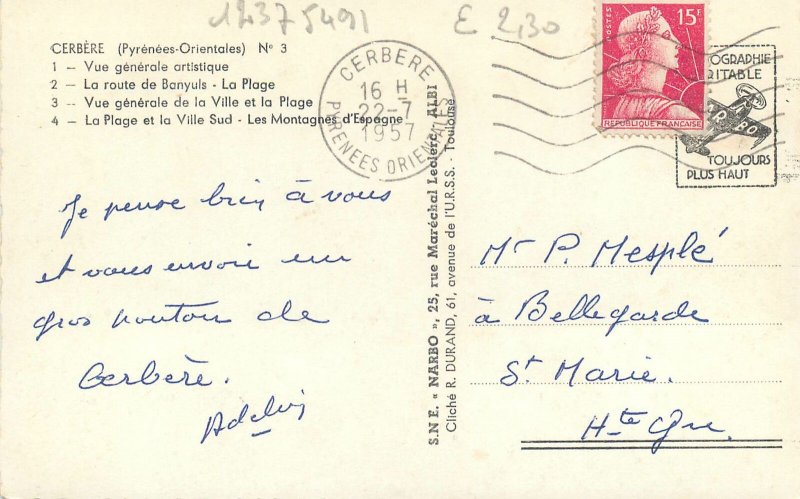 12375491
E 2,30
CERBÈRE (Pyrénées-Orientales) N° 3
1 - Vue générale artistique
2 - La route de Banyuls - La Plage
3 - Vue générale de la Ville et la Plage
4 - La Plage et la Ville Sud - Les Montagnes d'Espagne
CERBERE
16 H
22-7
1957
PYRENEES ORIENTALES
POSTES
15F
REPUBLIQUE FRANCAISE
OGRAPHIE
RITABLE
TOUJOURS
PLUS HAUT
S.N.E. « NARBO », 25, rue Maréchal Leclerc, ALBI
Cliché R. DURAND, 61, avenue de l'U.R.S.S. - Toulouse
Je pense bien à vous
et vous envoie un
gros de
Cerbère.
Mr P. Mesplé
à Bellegarde
St Marie.
Hte Gne.